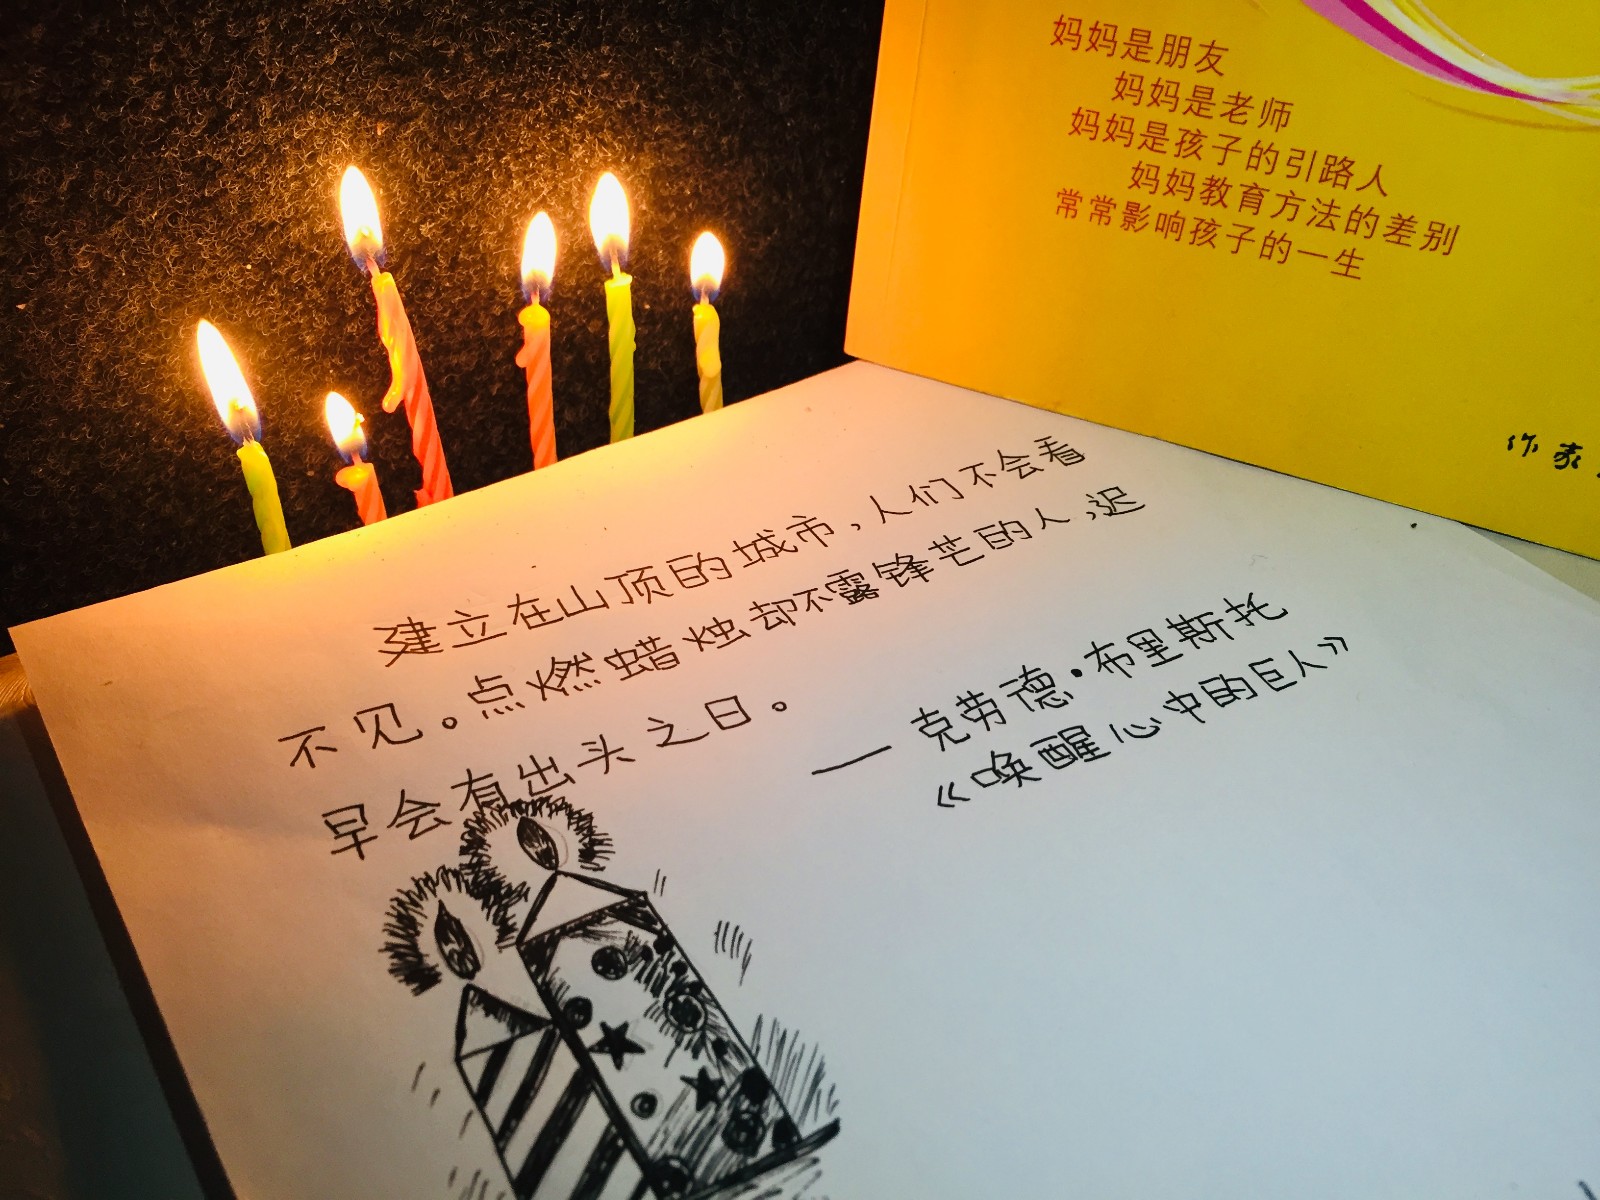 妈妈是朋友
妈妈是老师
妈妈是孩子的引路人
妈妈教育方法的差别
常常影响孩子的一生
作家
建立在山顶的城市,人们不会看
不见。点燃蜡烛却不露锋芒的人,迟
早会有出头之日。
——克劳德·布里斯托
《唤醒心中的巨人》